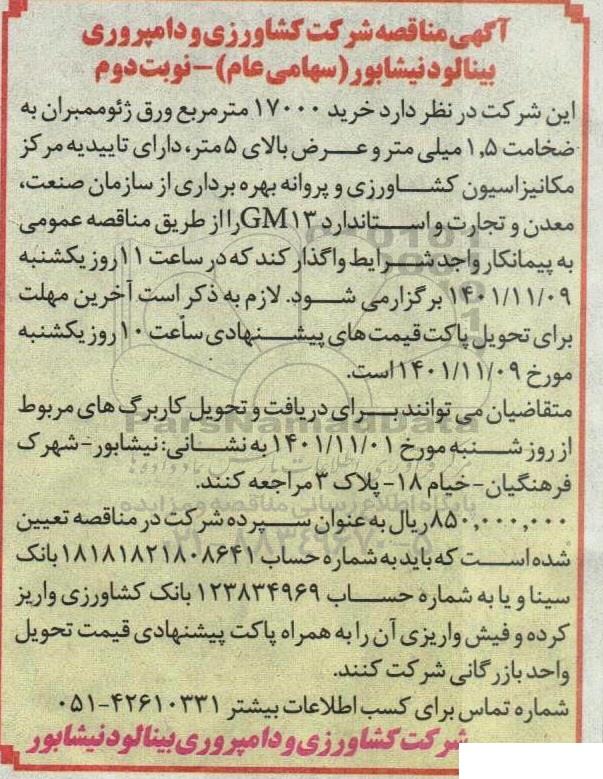 آگهی مناقصه شرکت کشاورزی و دامپروری
بینالود نیشابور (سهامی عام) - نوبت دوم
این شرکت در نظر دارد خرید ۱۷۰۰۰ مترمربع ورق ژئوممبران به
ضخامت ۱,۵ میلی متر و عرض بالای ۵ متر، دارای تاییدیه مرکز
مکانیزاسیون کشاورزی و پروانه بهره برداری از سازمان صنعت،
معدن و تجارت و استاندارد GM۱۳ را از طریق مناقصه عمومی
به پیمانکار واجد شرایط واگذار کند که در ساعت ۱۱ روز یکشنبه
۱۴۰۱/۱۱/۰۹ برگزار می شود. لازم به ذکر است آخرین مهلت
برای تحویل پاکت قیمت های پیشنهادی ساعت ۱۰ روز یکشنبه
مورخ ۱۴۰۱/۱۱/۰۹ است.
متقاضیان می توانند برای دریافت و تحویل کاربرگ های مربوط
از روز شنبه مورخ ۱۴۰۱/۱۱/۰۱ به نشانی: نیشابور - شهرک
فرهنگیان - خیام ۱۸ - پلاک ۳ مراجعه کنند.
۸۵۰,۰۰۰,۰۰۰ ریال به عنوان سپرده شرکت در مناقصه تعیین
شده است که باید به شماره حساب ۱۸۱۸۱۸۲۱۸۰۸۶۴۱ بانک
سینا و یا به شماره حساب ۱۲۳۸۳۴۹۶۹ بانک کشاورزی واریز
کرده و فیش واریزی آن را به همراه پاکت پیشنهادی قیمت تحویل
واحد بازرگانی شرکت کنند.
شماره تماس برای کسب اطلاعات بیشتر ۴۲۶۱۰۳۳۱-۰۵۱
شرکت کشاورزی و دامپروری بینالود نیشابور
ParsNamadData
پایگاه اطلاع رسانی مناقصه و مزایده